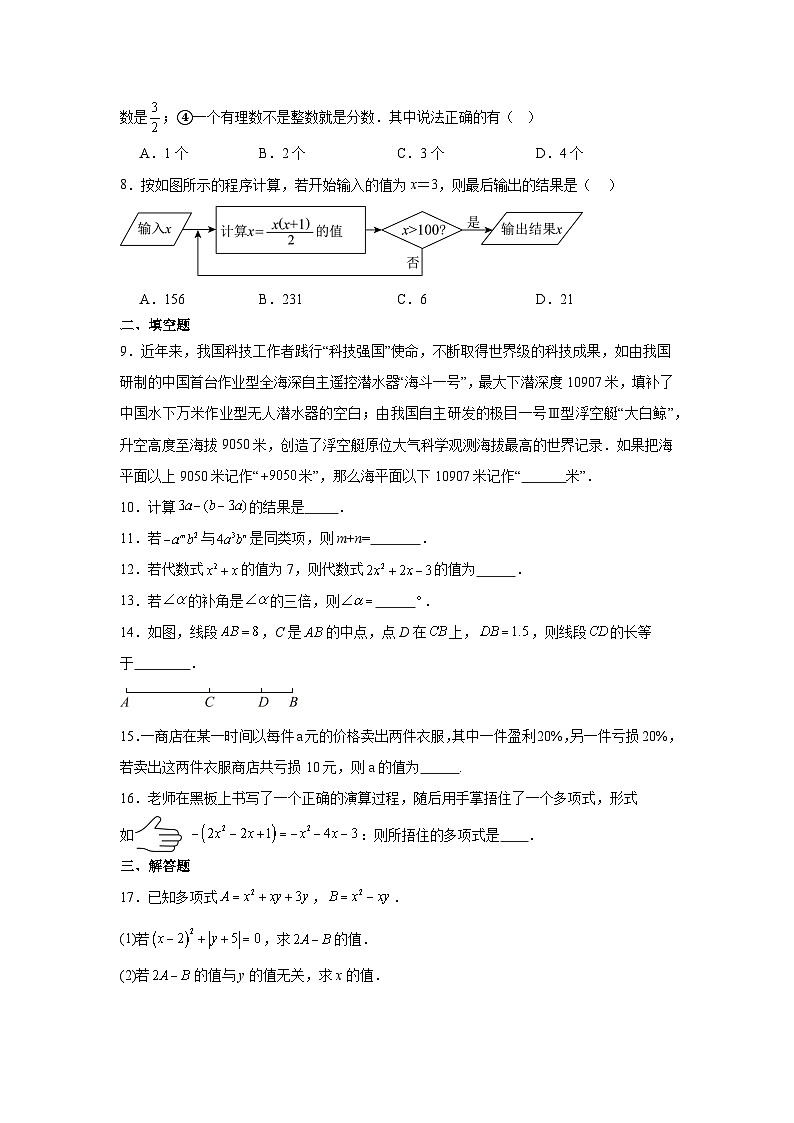 数是3/2；④一个有理数不是整数就是分数．其中说法正确的有（ ）
A．1个 B．2个 C．3个 D．4个
8．按如图所示的程序计算，若开始输入的值为x＝3，则最后输出的结果是（ ）
输入x 计算x=x(x+1)/2的值 x>100? 是 输出结果x
否
A．156 B．231 C．6 D．21
二、填空题
9．近年来，我国科技工作者践行“科技强国”使命，不断取得世界级的科技成果，如由我国
研制的中国首台作业型全海深自主遥控潜水器“海斗一号”，最大下潜深度10907米，填补了
中国水下万米作业型无人潜水器的空白；由我国自主研发的极目一号Ⅲ型浮空艇“大白鲸”，
升空高度至海拔9050米，创造了浮空艇原位大气科学观测海拔最高的世界记录．如果把海
平面以上9050米记作“+9050米”，那么海平面以下10907米记作“______米”．
10．计算3a-(b-3a)的结果是_____．
11．若-aᵐb²与4a³bⁿ是同类项，则m+n=_______．
12．若代数式x²+x的值为7，则代数式2x²+2x-3的值为_____．
13．若∠α的补角是∠α的三倍，则∠α=______°．
14．如图，线段AB=8，C是AB的中点，点D在CB上，DB=1.5，则线段CD的长等
于________．
A C D B
15.一商店在某一时间以每件a元的价格卖出两件衣服,其中一件盈利20%,另一件亏损20%，
若卖出这两件衣服商店共亏损10元，则a的值为_____.
16．老师在黑板上书写了一个正确的演算过程，随后用手掌捂住了一个多项式，形式
如 -(2x²-2x+1)=-x²-4x-3：则所捂住的多项式是____．
三、解答题
17．已知多项式A=x²+xy+3y，B=x²-xy．
(1)若(x-2)²+|y+5|=0，求2A-B的值．
(2)若2A-B的值与y的值无关，求x的值．